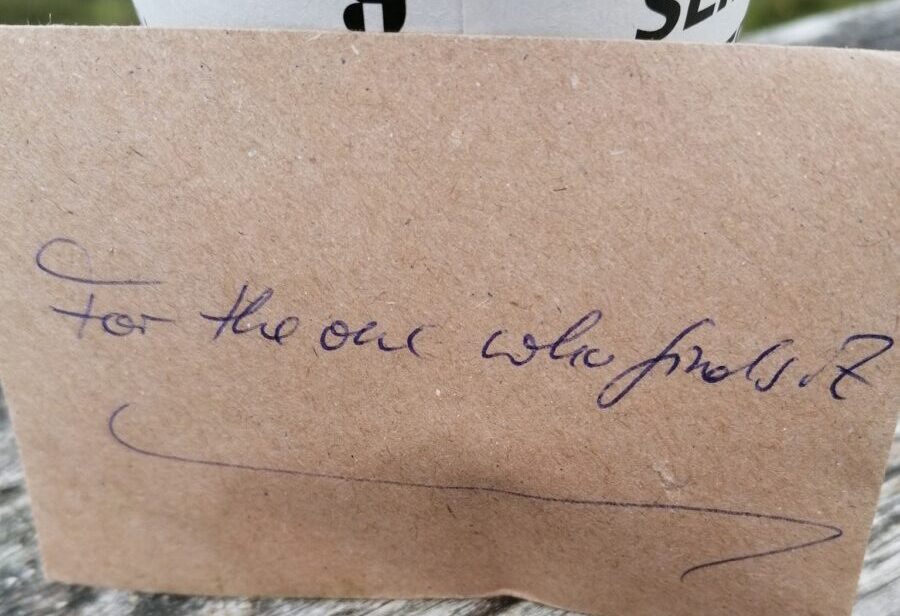 For the one who finds it